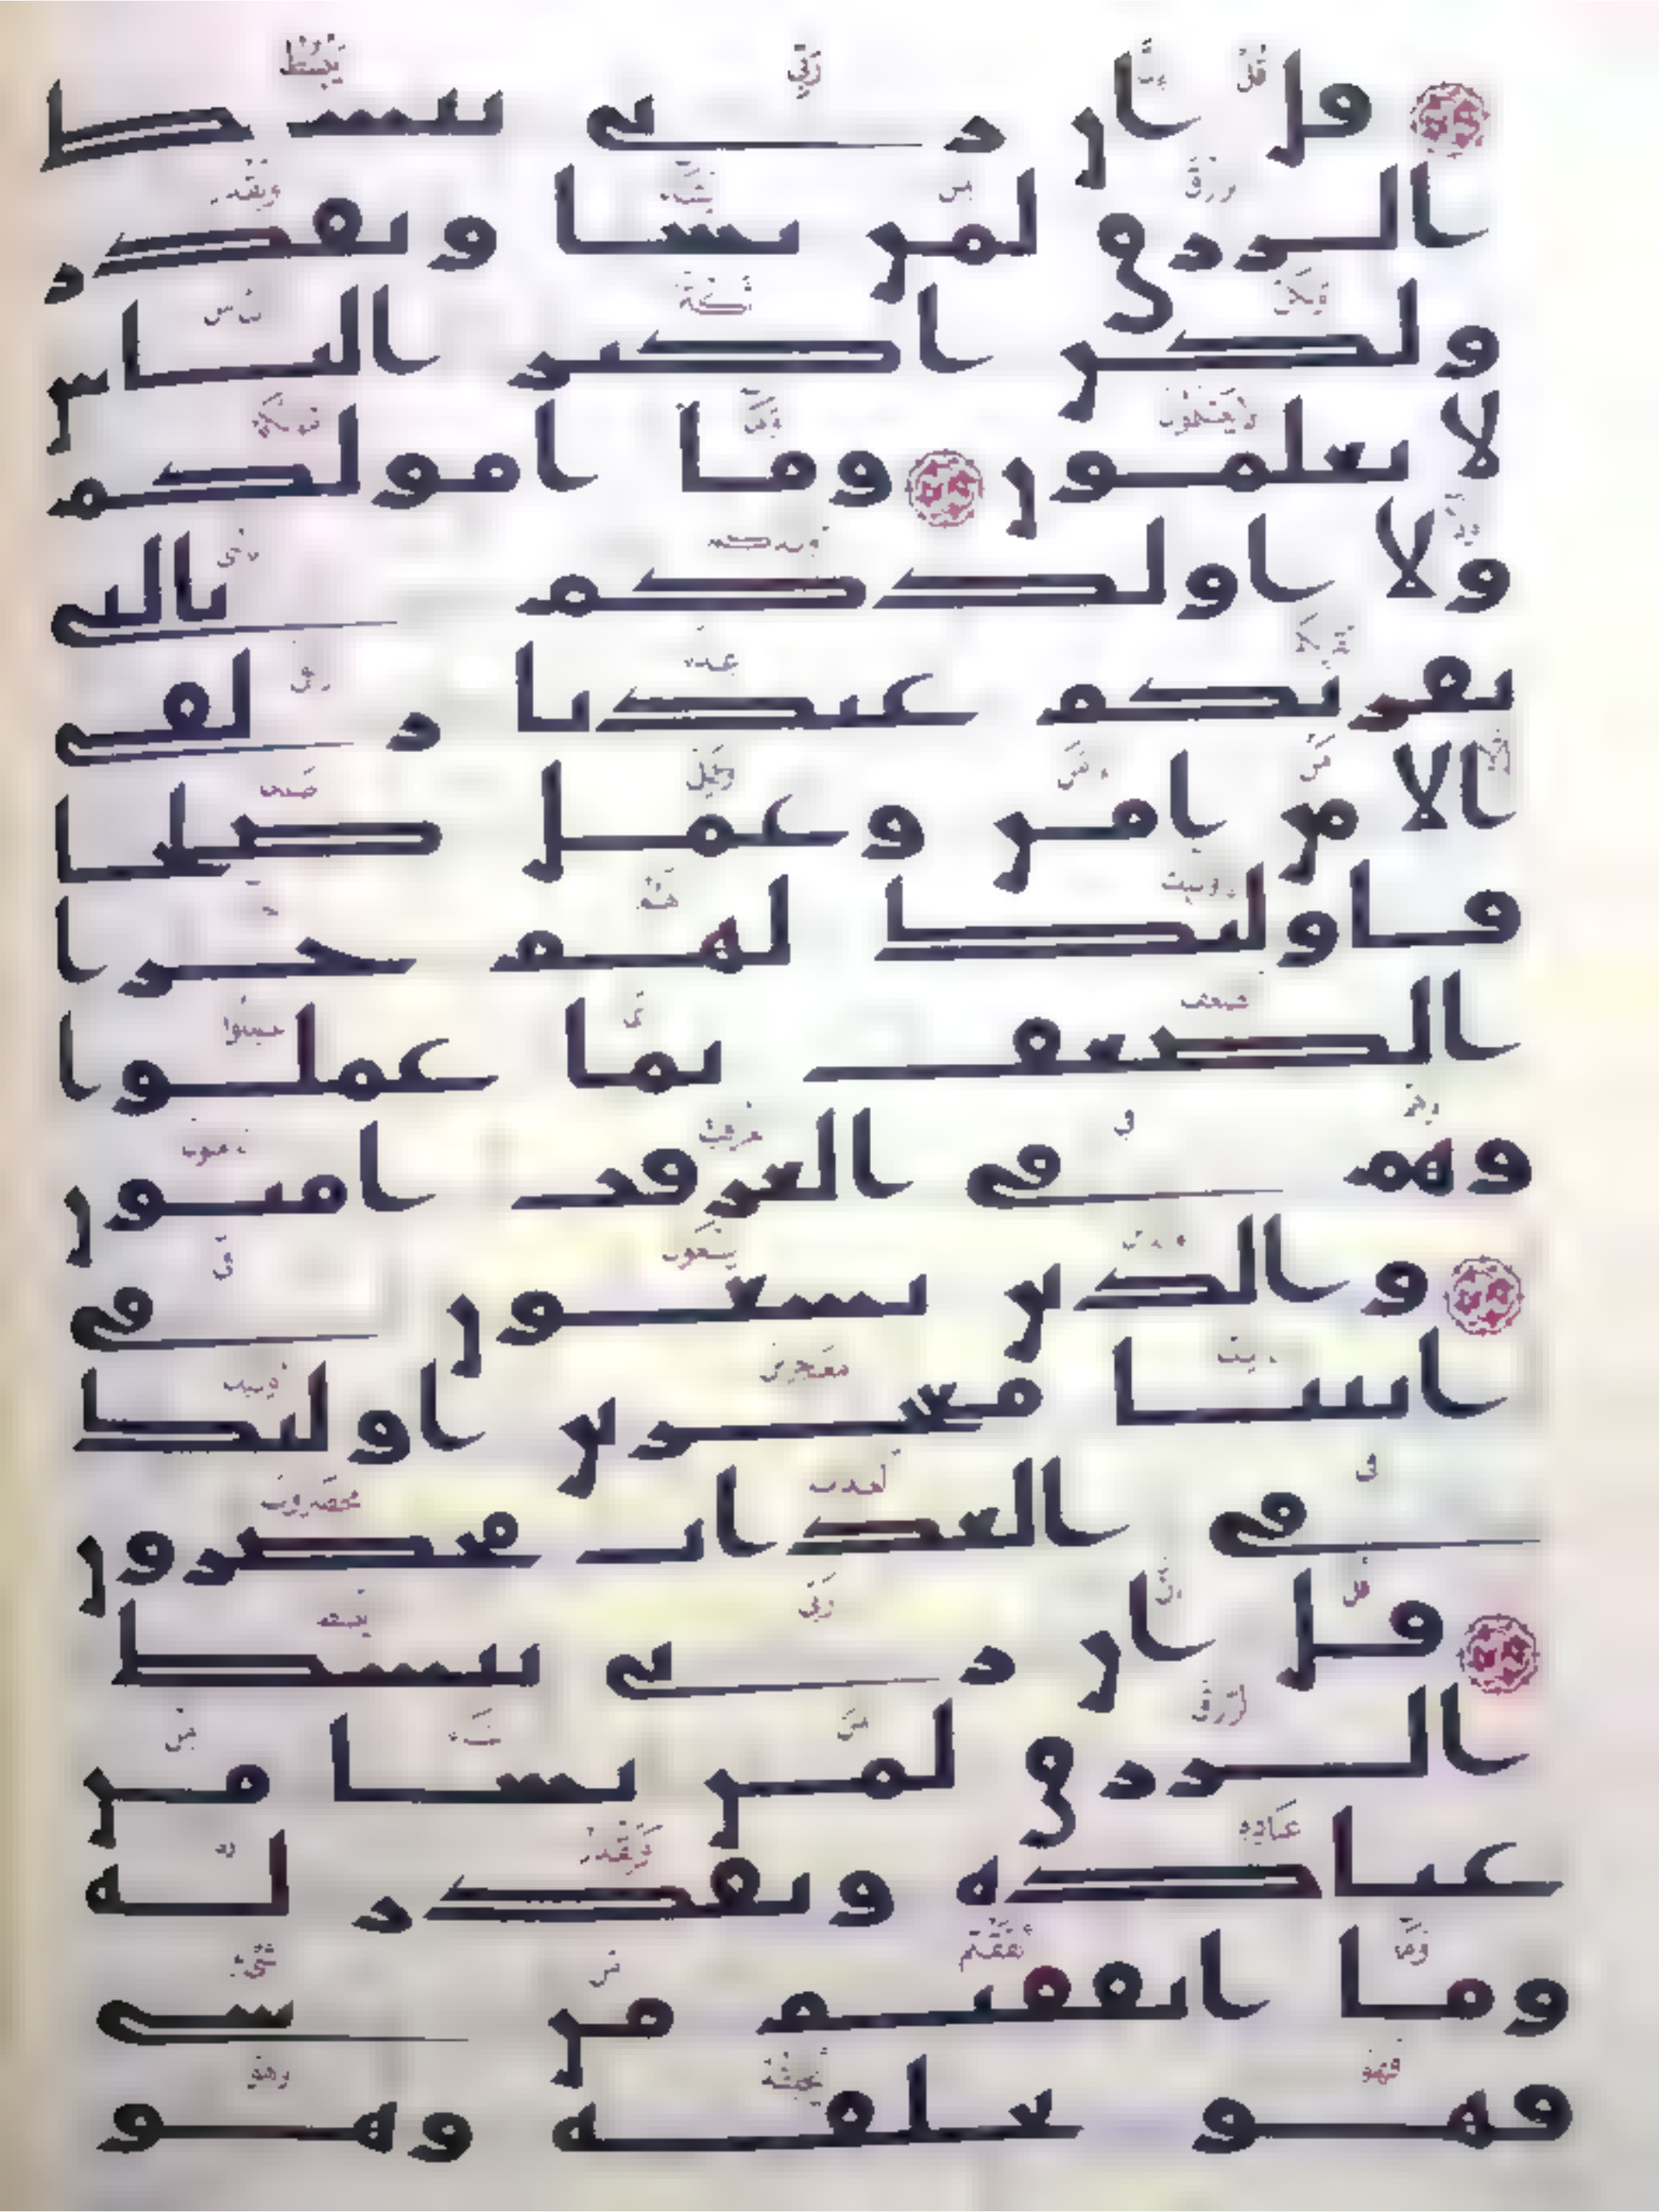 قل ان ربي يبسط
الرزق لمن يشا ويقدر
ولكن اكثر الناس
لا يعلمون وما امولكم
ولا اولدكم بالتي
تقربكم عندنا زلفى
الا من امن وعمل صلحا
فاولئك لهم جزا
الضعف بما عملوا
وهم في الغرفت امنون
والذين يسعون في
ايتنا معجزين اولئك
في العذاب محضرون
قل ان ربي يبسط
الرزق لمن يشا من
عباده ويقدر له
وما انفقتم من شي
فهو يخلفه وهو